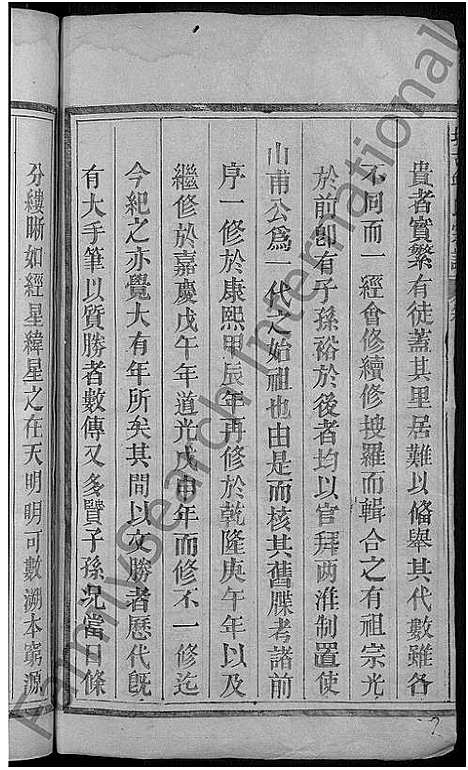 貴者實繁有徒蓋其里居難以偹舉其代數雖各
不同而一經會修續修搜羅而輯合之有祖宗光
於前卽有子孫裕於後者均以官拜两淮制置使
山甫公爲一代之始祖也由是而核其舊牒考諸前
序一修於康熙甲辰年再修於乾隆庚午年以及
繼修於嘉慶戊午年道光戊申年而修不一修迄
今紀之亦覺大有年所矣其間以文勝者歷代旣
有大手筆以質勝者數傳又多賢子孫況當日條
分縷晰如經星緯星之在天明明可數溯本窮源
Familysearch International